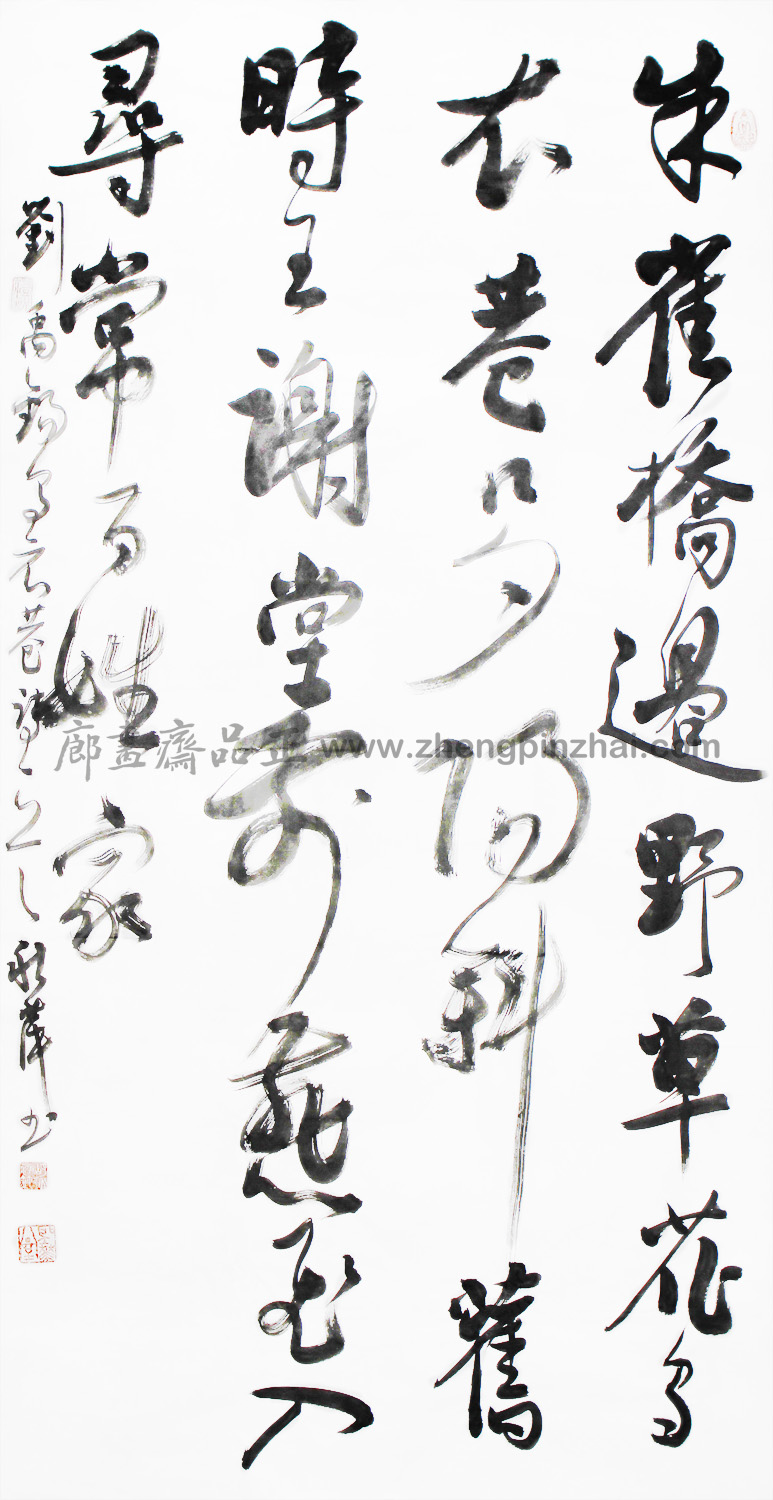 朱雀橋邊野草花烏
衣巷口夕陽斜舊
時王謝堂前燕飛入
尋常百姓家
劉禹錫烏衣巷詩书
廊畫齋品正 www.zhengpinzhai.com